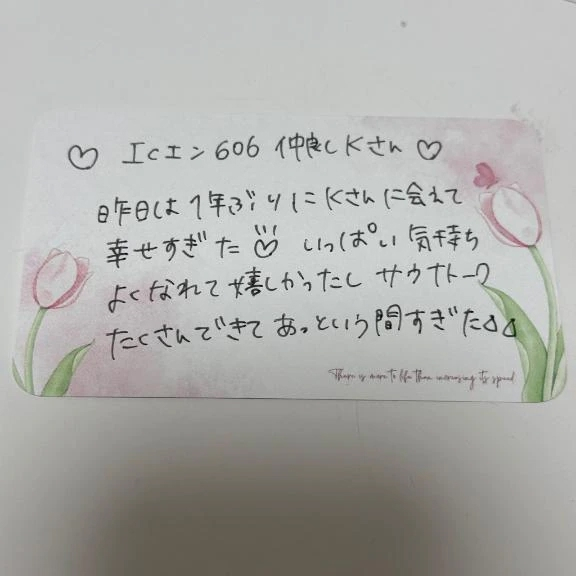 ♡ ICエン 606 仲良しKさん ♡
昨日は1年ぶりにKさんに会えて
幸せすぎた♡ いっぱい気持ち
よくなれて嬉しかったし サウナトーク
たくさんできてあっという間すぎた△△
There is more to life than increasing its speed.